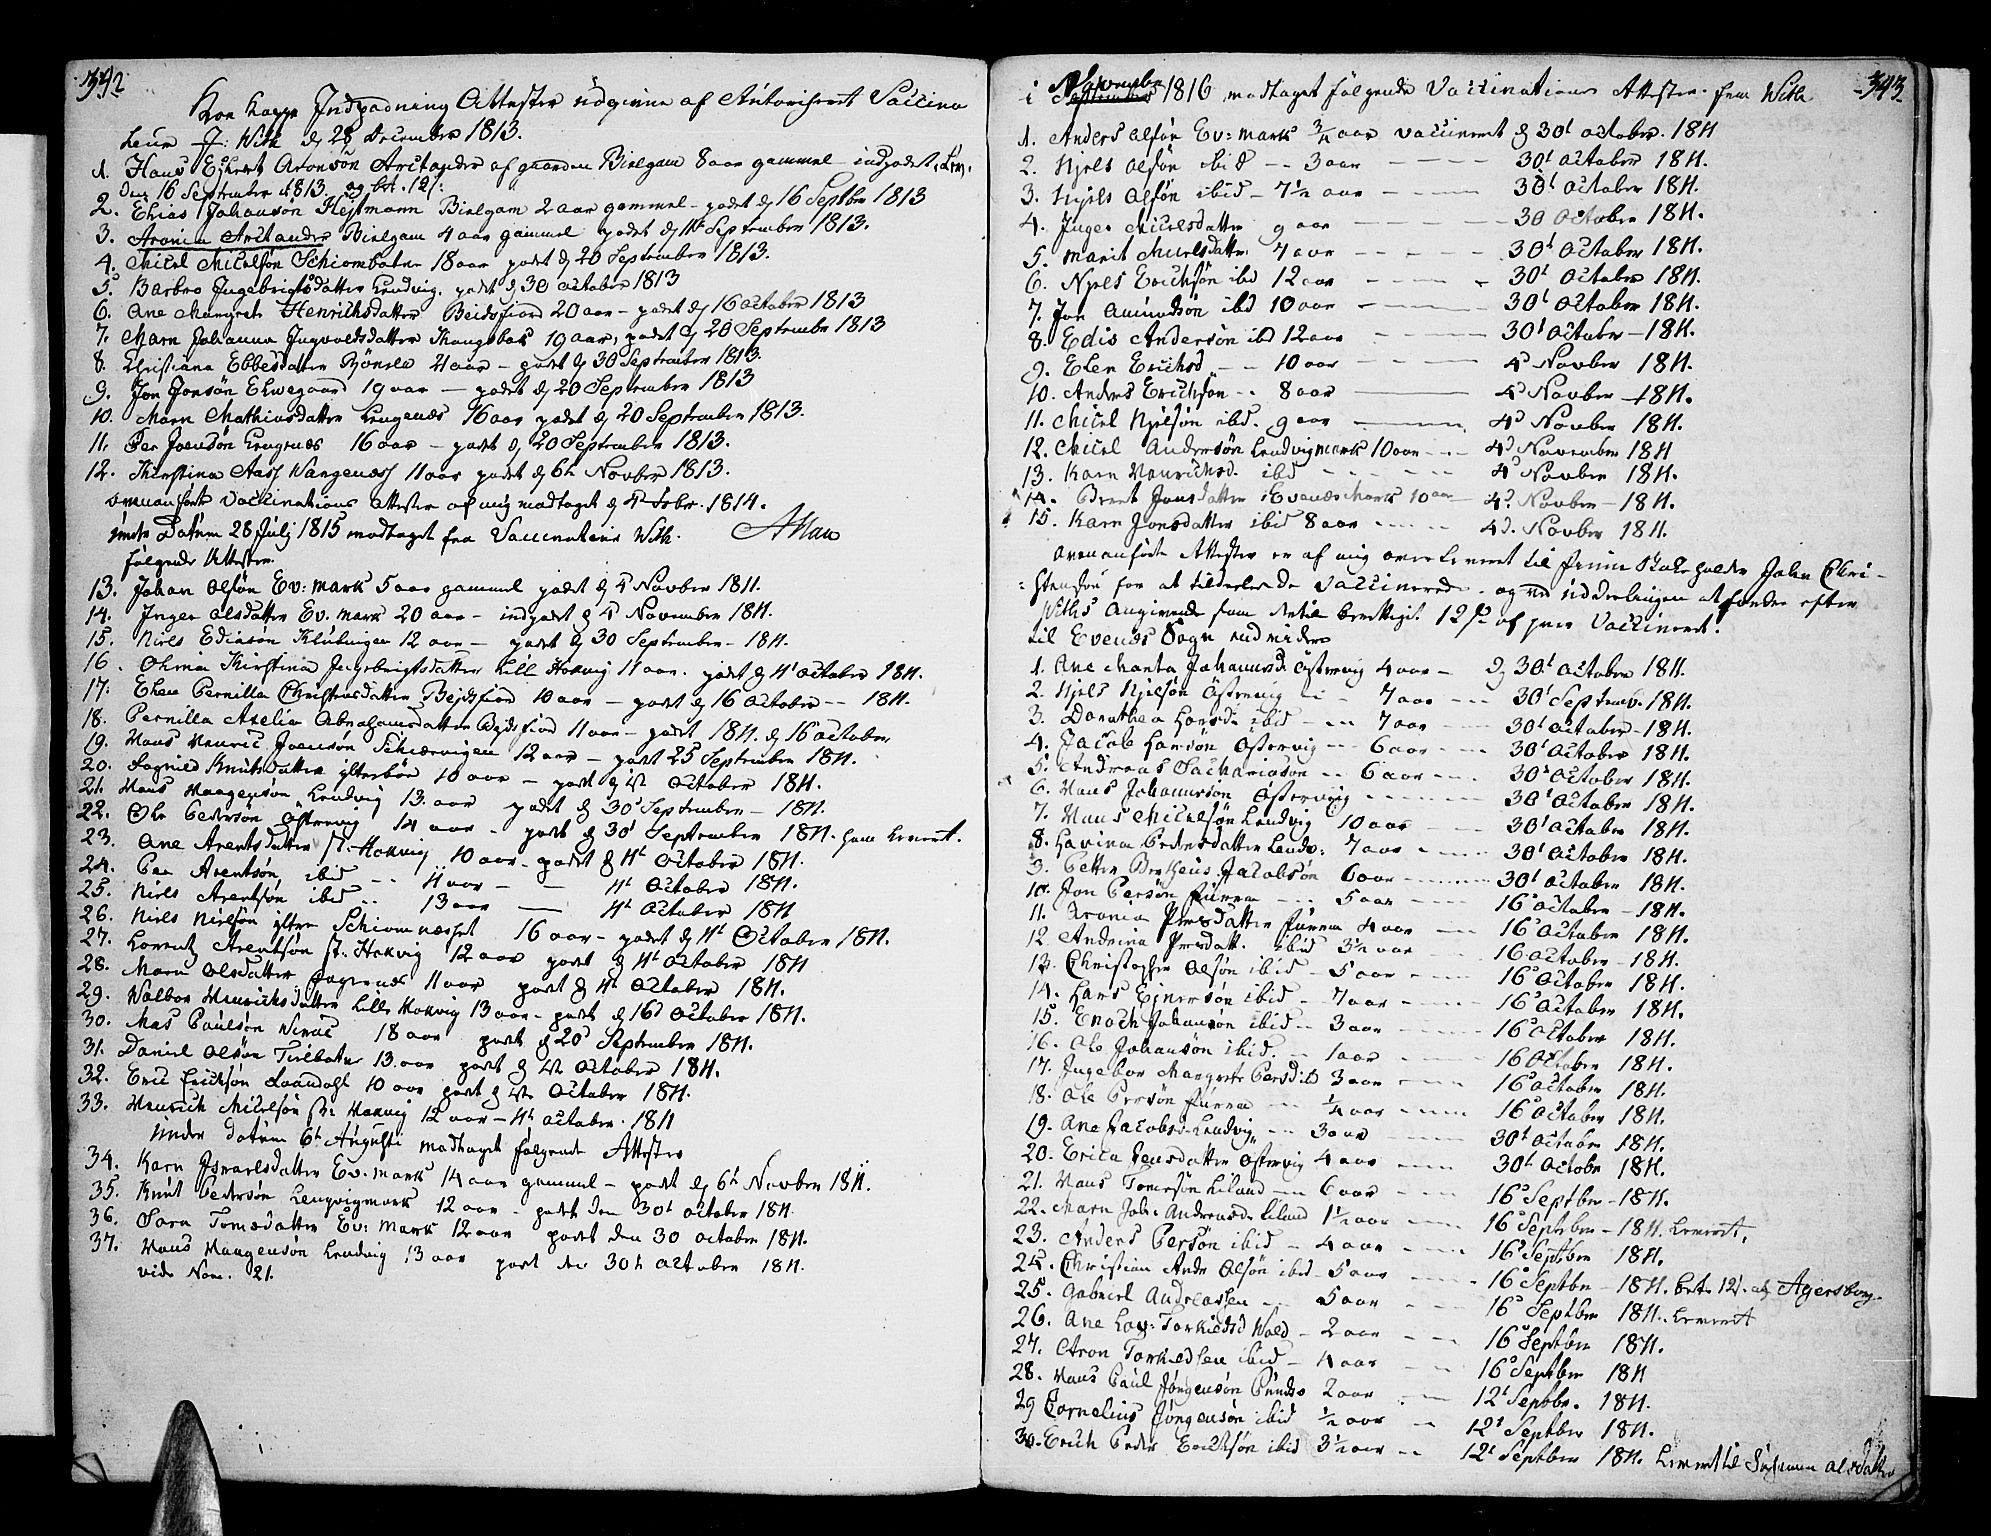 342
Koe Koppe Indpodning Attester udgivne af Autoriseret Vaccina
teur J: With d 28 December 1813.
1. Hans Eggert Aronsön Arctander af gaarden Bielgam 8 aar gammel - indpodet
den 16 September 1813.
2. Elias Johansön Hejtmann Bielgam 2 aar gammel - podet d 16 Septbr 1813
3. Aronia Arctander Bielgam 4 aar gammel podet d September 1813.
4. Micel Micelsön Schiombatn 18 aar podet d 20 September 1813.
5. Barbro Ingebrigtsdatter Lendvig. podet d 30 October 1813
6. Ane Margrete Henrichsdatter Beidsfiord 20 aar - podet d 16 October 1813
7. Maren Johanna Ingvoldsdatter 19 aar, podet d 20 September 1813
8. Christiana Ebbesdatter 21 aar - podet d 30 September 1813.
9. Jon Jonsön Elvegaard 19 aar - podet d 20 September 1813
10. Maren Mathiasdatter Lengenæs 16 aar podet d 20 September 1813.
11. Per Joensön Lengenæs 16 aar - podet d 20 September 1813.
12. Kirstina Aas Wangenæs 11 aar podet d 6te Novber 1813.
ovenanførte Vaccinations Attester af mig modtaget d 4 Febr. 1814.
under Datum 28 Julj 1815 modtaget fra Vaccinateur With.
følgende Attester.
13. Johan Olsön Ev: mark 5 aar gammel podet d 4 Novber 1811.
14. Inger Olsdatter Ev. mark 20 aar - indpodet d 4 November 1811.
15. Niels Ediasön 12 aar - podet d 30 September - 1811.
16. Kirstina Ingebrigtsdatter Lill Hokvig 11 aar. podet d 4t October 1811.
17. Elen Pernilla Christensdatter Bejdsfiord 10 aar - podet d 16 October -- 1811.
18. Pernilla Axelia Abrahamsdatter Bejdsfiord 11 aar - podet 1811. d 16 October
19. Hans Henric Joensön 12 aar - podet 23 September 1811.
20. Knutsdatter 10 aar - podet d October 1811.
21. Hans Haagensön Lendvig 13 aar podet d 30 September - 1811.
22. Ole Pedersön Östervig 14 aar - podet d 30 September 1811.
23. Ane Arentsdatter St. Hokvig 10 aar - podet d 4t October 1811.
24. Per Arentsön ibid -- 11 aar - - 4t October 1811.
25. Niels Arentsön ibid -- 13 aar - 4t October 1811
26. Niels Nielsön Schiomnæsset 16 aar - podet d 4t October 1811.
27. Lorentz Arentsön St. Hokvig 12 aar podet d 4t October 1811
28. Maren Olsdatter 11 aar podet d 4t October 1811.
29. Henrichsdatter Lille Hokvig 13 aar - podet d 16 October 1811.
30. Mas Paulsön 18 aar podet d 20 September 1811.
31. Daniel Olsön 13 aar podet d October 1811.
32. Eric Ericksön 10 aar podet d October 1811.
33. Henrich Micelsön St: Hokvig 12 aar - 4t October. 1811
under datum 6t Augusti modtaget følgende Attester
34. Karn Israelsdatter Ev: mark 14 aar gammel - podet d 6t Novber 1811.
35. Knut Pedersön 12 aar - podet den 30t October 1811.
36. Sara Tomesdatter Ev: mark 12 aar podet den 30 October 1811.
37. Hans Haagensön Lendvig 13 aar podet den 30t October 1811.
vide Nom. 21.
343
i November 1816 modtaget følgende Vaccinations Attester fra With
1. Anders Olsön Ev: mark 3/4 aar vaccineret d 30t october. 1811
2. Njels Olsön ibid -- 3 aar - - - 30t October 1811.
3. Njels Olsön ibid - 7 1/2 aar - - - 30t October 1811.
4. Inger Micelsdatter 9 aar - 30 October 1811.
5. Marit Micelsdatter 7 aar - - - 30t October 1811.
6. Njels Erichsön ibd 12 aar - - - 30t October 1811.
7. Jon Amundsön ibd 10 aar - 30t October 1811.
8. Edis Andersön ibd 12 aar - 30t October - 1811.
9. Elen Erichsd -- 10 aar - 4d Novber 1811.
10. Anders Erichsön -- 8 aar - 4d Novber - 1811.
11. Micel Njelsön ibd. 9 aar - 4d Novber 1811.
12. Micel Andersön Lendvigmark 10 aar - 4d November 1811
13. Karn Henrichsd. ibd - - - 4d Novber 1811.
14. Beret Jonsdatter i Evenæs Mark 10 aar - 4d. Novber - 1811.
15. Karn Jonsdatter ibid 8 aar - - 4d. Novber 1811.
ovenanførte Attester er af mig overleveret til John Chri-
stensön for at tilddele de Vaccinerede - og ved uddelingen at fordre efter
Withs Angivende som dertil berettiget 12 s af hver Vaccineret.
til Evenæs Sogn
1. Ane Marta Johannesd: Östervig 4 aar - d 30t October 1811.
2. Njels Njelsön Östervig - 7 aar - 30t Septemb. 1811.
3. Dorothea Larsd: ibid - 7 aar - 30t October - 1811.
4. Jacob Larsön Östervig - 6 aar - 30t October 1811.
5. Andreas Sachariasön - 6 aar - 30t October 1811.
6. Hans Johannesön Östervig - 30t October 1811.
7. Hans Micelsön Lendvig 10 aar - 30t October 1811.
8. Lavina Pedersdatter Lendv: 7 aar - 30t October 1811.
9. Petter Jacobsön 6 aar - 30t October 1811.
10. Jon Persön - 5 aar - 16 October - 1811.
11. Aronia Persdatter 4 aar - 16 October 1811.
12. Andrina Persdatt. ibid 3 1/2 aar - 16 October - 1811.
13. Christopher Olsön ibid - 5 aar - 16 October 1811.
14. Lars Ejnersön ibid - 7 aar - 16 October 1811.
15. Enoch Johansön ibid - 3 aar - 16 October 1811.
16. Ole Johansön ibid. - 1 aar - 16 October 1811.
17. Ingebor Margrete Persdtr 3 aar - 16 October 1811.
18. Ole Persön - 1/4 aar - 16 October 1811.
19. Ane Jacobsd: Lendvig - 3 aar - 30t Octobr 1811.
20. Erica Jensdatter Östervig 4 aar - 30t Octobr 1811.
21. Hans Tomesön Liland - 6 aar - 16 Septbr - 1811.
22. Maren Joh: Andreasd: Liland 1 1/2 aar - 16 Septbr - 1811. Leveret.
23. Anders Persön ibid - 4 aar - 16 Septbr 1811.
24. Christian Andr Olsön ibid - 5 aar - 16 Septbr - 1811. Agersborg
25. Gabriel Andreassen - 5 aar - 16 Septbr 1811. Leveret
26. Ane Lov: Torkildsd - 2 aar - 16 Septbr 1811.
27. Aron Torkildsen ibid - 4 aar - 16 Septbr 1811
28. Hans Paul Jörgensön 2 aar - 12t Septbr. 1811.
29 Cornelius Jörgensön ibid 1/2 aar - 12t Septbr 1811.
30. Erich Peder Erichsön ibid 3 1/2 aar - 12t Septbr 1811. Leveret til Olsdatter